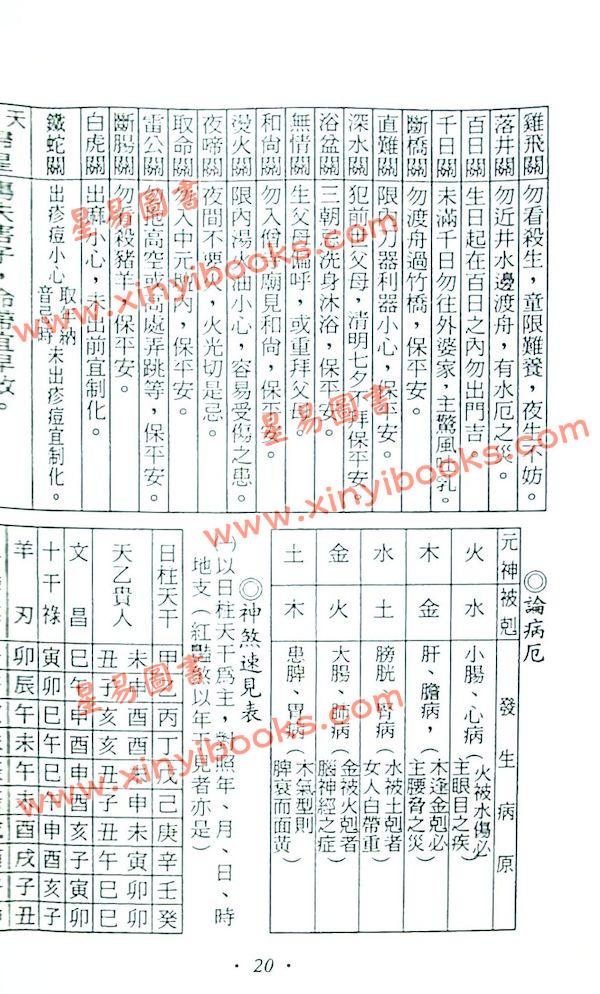 雞飛關 勿看殺生，童限難養，夜生不妨。
落井關 勿近井水邊渡舟，有水厄之災。
百日關 生日起在百日之內勿出門吉。
千日關 未滿千日勿往外婆家，主驚風吐乳。
斷橋關 勿渡舟過竹橋，保平安。
直難關 限內刀器利器小心，保平安。
深水關 犯前世父母，清明七夕不拜保平安。
浴盆關 三朝忌洗身沐浴，保平安。
無情關 生父母偏呼，或重拜父母。
和尚關 勿入僧寺廟見和尚，保平安。
燙火關 限內湯火油小心，容易受傷之患。
夜啼關 夜間不要，火光切是忌。
取命關 勿入中元地內，保平安。
雷公關 高空或高處弄跳等，保平安。
斷腸關 勿看殺豬羊，保平安。
白虎關 出麻小心，未出前宜制化。
鐵蛇關 出疹痘小心 未出疹痘宜制化。
◎論病厄
元神 被剋 發生病原
火 水 小腸、心病（火被水傷必主眼目之疾）
木 金 肝、膽病，（木逢金剋必主腰脅之災）
水 土 膀胱、腎病（水被土剋者女人白帶重）
金 火 大腸、肺病（金被火剋者腦神經之症）
土 木 患脾、胃病（木氣型則脾衰而面黃）
◎神煞速見表
㈠以日柱天干爲主，對照年、月、日、時
地支（紅豔煞以年干見者亦是）
日柱天干 甲 乙 丙 丁 戊 己 庚 辛 壬 癸
天乙貴人 未 申 酉 酉 未 申 未 寅 卯 卯
丑 子 亥 亥 丑 子 丑 午 巳 巳
文昌 巳 午 申 酉 申 酉 亥 子 寅 卯
十干祿 寅 卯 巳 午 巳 午 申 酉 亥 子
羊刃 卯 辰 午 未 午 未 酉 戌 子 丑
·20·
星易圖書
www.xinyibooks.com
星易圖書
www.xinyibooks.com
星易圖書
www.xinyibooks.com
星易圖書
www.xinyibooks.com